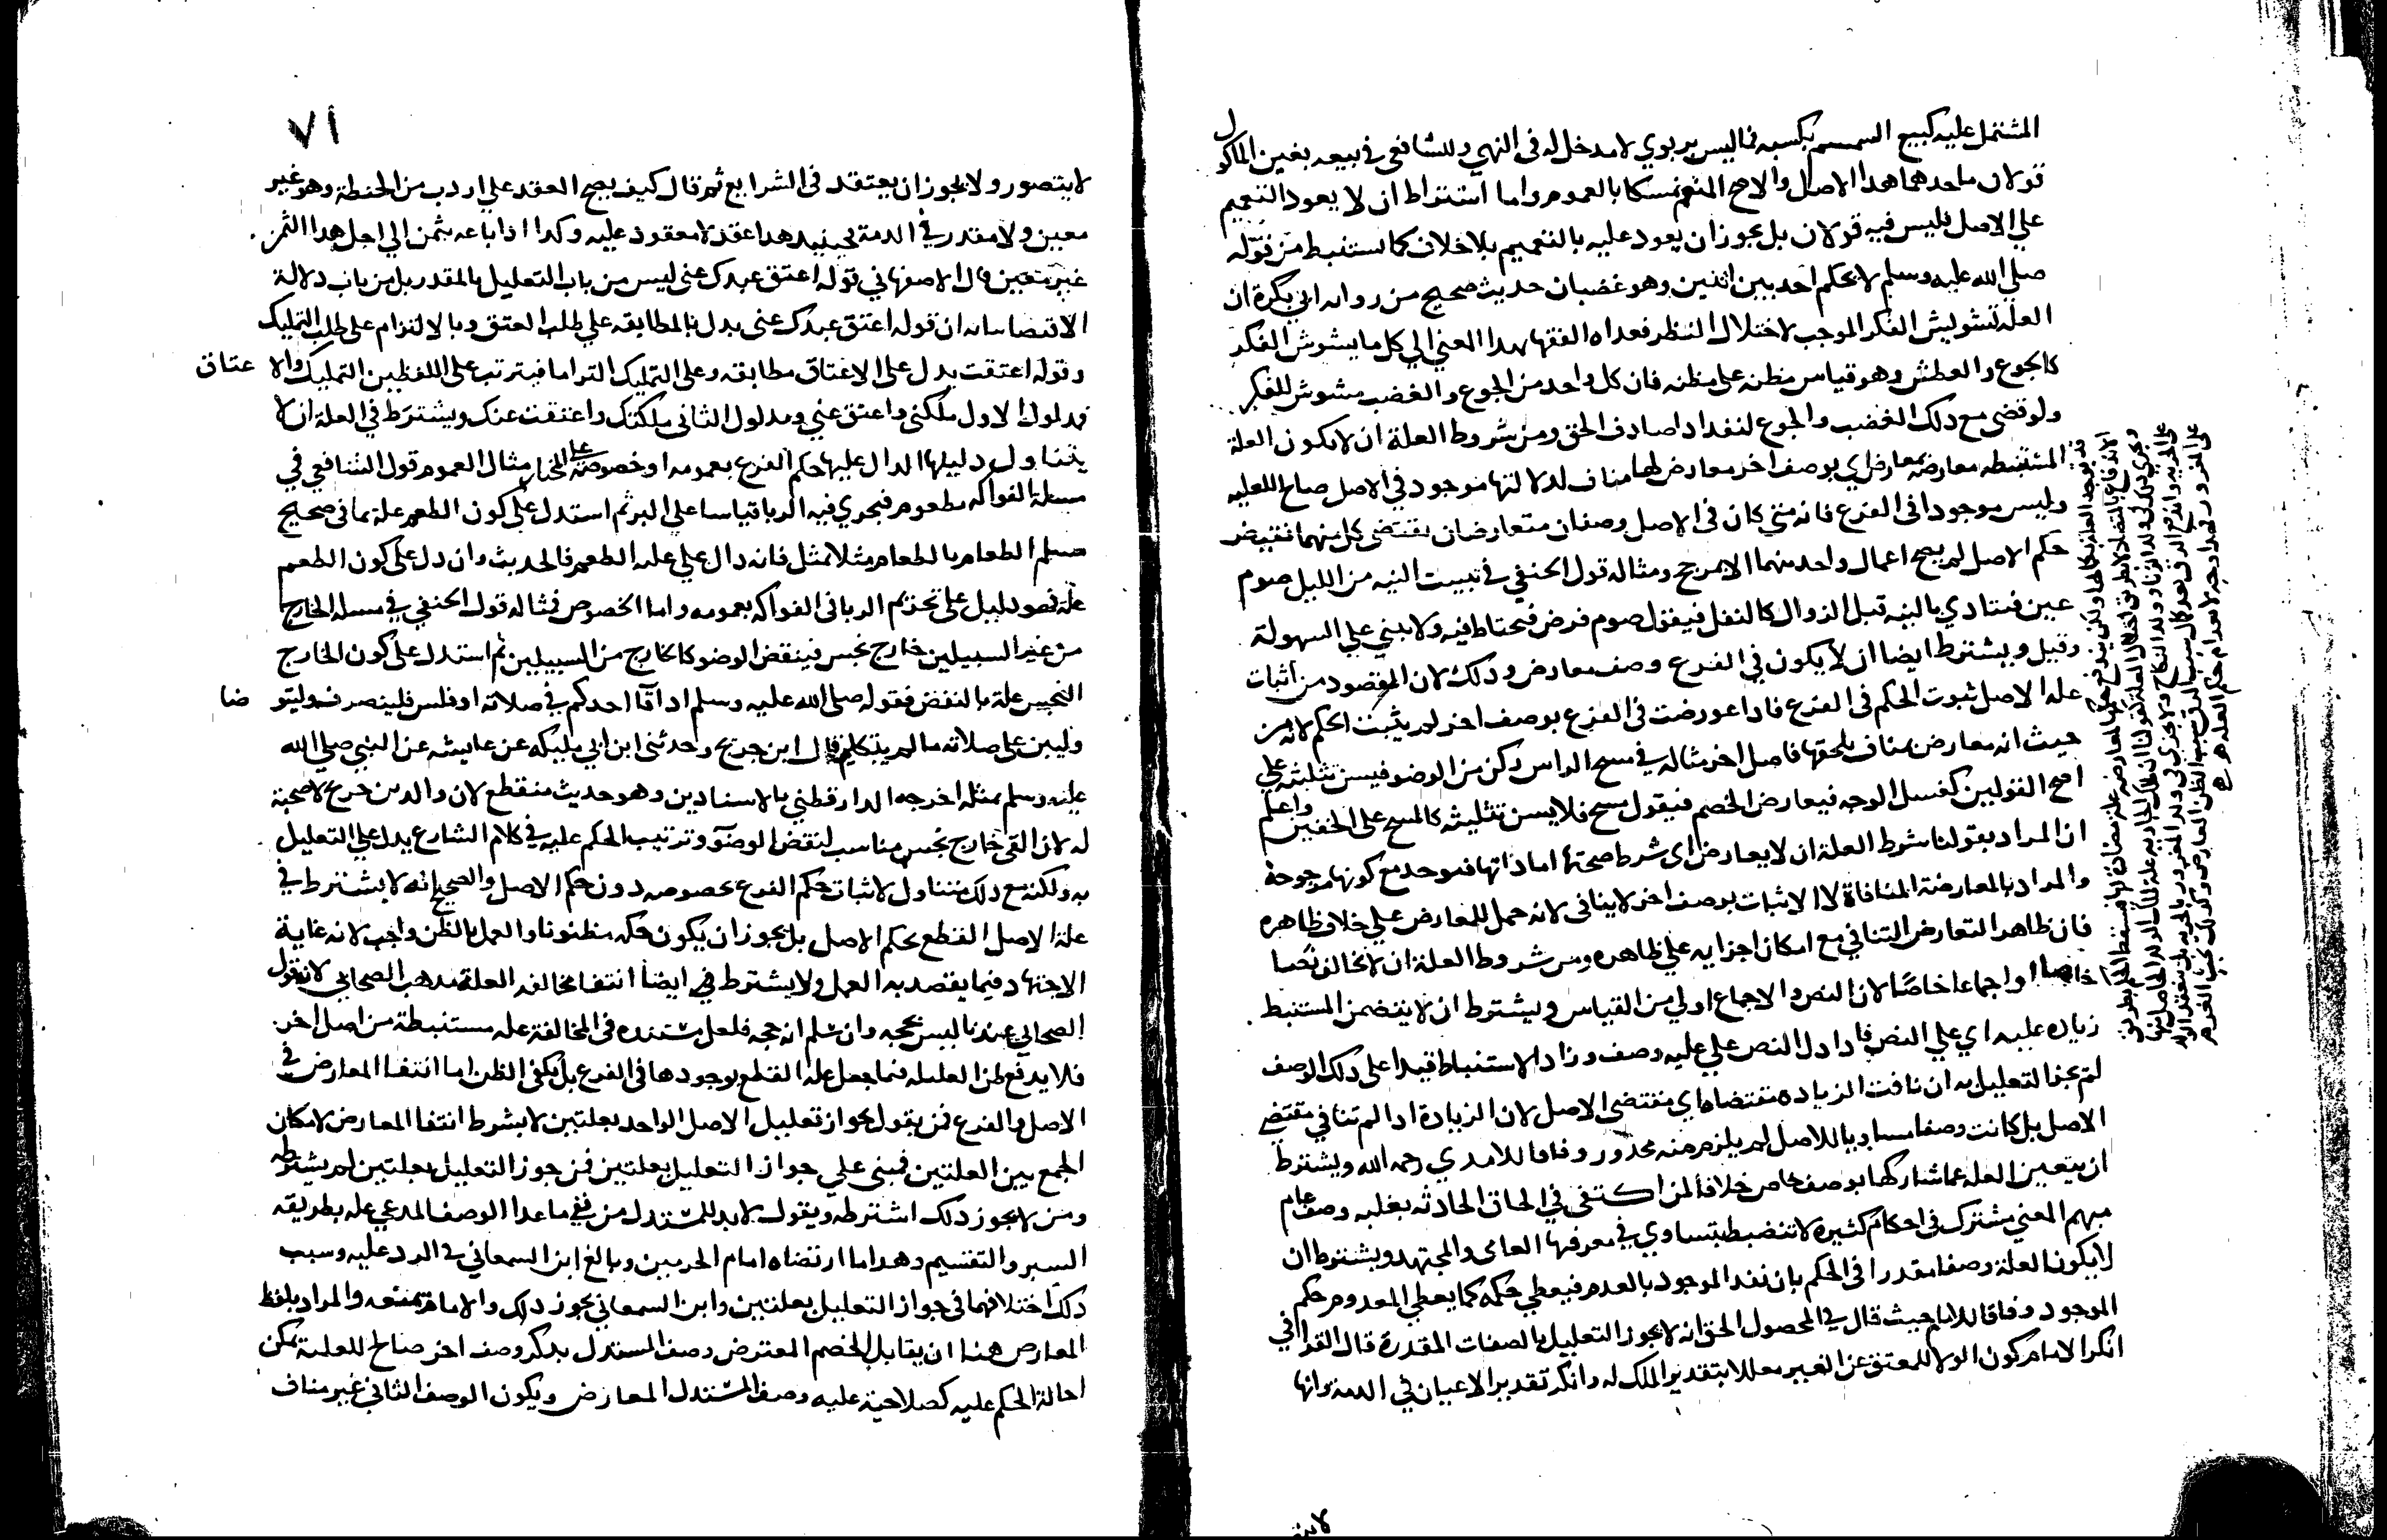 المشتمل عليه كبيع السمسم بكسبه فاليس بربوي لامدخل له في النهي وللشافعي في بيعه بغير الماكول
قولان ماحدهما هدا الاصل والاصح المنع تمسكا بالعموم واما اشتراط ان لا يعود التعميم
على الاصل فليس فيه قولان بل يجوز ان يعود عليه بالتعميم بلا خلاف كما استنبط من قوله
صلى الله عليه وسلم لا يحكم احد بين اثنين وهو غضبان حديث صحيح من رواية ابي بكرة ان
العلة تشويش الفكر الموجب لاختلال النظر فعداه الفقها بهدا المعني الي كل ما يشوش الفكر
كالجوع والعطش وهو قياس مظنه على مظنه فان كل واحد من الجوع والغضب مشوش للفكر
ولو قضى مع دلك الغضب والجوع لنفد ادا صادف الحق ومن شروط العلة ان لا يكون العلة
المستنبطه معارضه بمعارض اي بوصف اخر معارض لها مناف لدلالتها موجود في الاصل صالح للعليه
وليس موجودا في الفرع فانه متي كان في الاصل وصفان متعارضان يقتضي كل منهما نقيض
حكم الاصل لم يصح اعمال واحد منهما الا بمرجح ومثاله قول الحنفي في تبييت النيه من الليل صوم
عين فتادي بالنيه قبل الزوال كالنفل فيقول صوم فرض فيحتاط فيه ولا يبني علي السهولة
وقيل ويشترط ايضا ان لا يكون في الفرع وصف معارض ودلك لان المقصود من اثبات
علة الاصل ثبوت الحكم في الفرع فادا عورضت في الفرع بوصف اخر لم يثبت الحكم لانه من
حيث انه معارض مناف يلحقها فاصل اخر مثاله في مسح الراس ركن من الوضو فيسن تثليثه علي
اصح القولين كغسل الوجه فيعارض الخصم فيقول مسح فلا يسن تثليثه كالمسح على الخفين واعلم
ان المراد بقولنا شرط العلة ان لا يعارض اي شرط صحتها اما داتها فتوجد مع كونها مرجوحة
والمراد بالمعارضة المنافاة لا الاثبات بوصف اخر لا ينافى لانه حمل للمعارض علي خلاف ظاهره
فان ظاهر التعارض التنافي مع امكان اجزايه علي ظاهره ومن شروط العلة ان لا تخالف نصا
خاصا او اجماعا خاصا لان النص والاجماع اولي من القياس ويشترط ان لا يتضمن المستنبط
زياده عليه اي علي النص فادا دل النص علي عليه وصف وزاد الاستنباط قيدا على دلك الوصف
لم يجز التعليل به ان نافت الزياده مقتضاه اي مقتضى الاصل لان الزيادة ادا لم تنافي مقتضى
الاصل بل كانت وصفا مساويا للاصل لم يلزم منه محدور وفاقا للامدي رحمه الله ويشترط
ان يتعين العله عما شاركها بوصف خاص خلافا لمن اكتفى في الحاق الحادثه بغلبه وصف عام
مبهم المعني مشترك في احكام كثيرة لا تنضبط يتساوي في معرفتها العامي والمجتهد ويشترط ان
لا يكون العلة وصفا مقدرا في الحكم بان نقد الموجود بالعدم فيعطي حكمه كما يعطي المعدوم حكم
الموجود وفاقا للامام حيث قال في المحصول الحق انه لا يجوز التعليل بالصفات المقدرة قال القرافي
انكر الامام كون الولا للمعتق عن الغير معللا بتقدير الملك له وانكر تقدير الاعيان في الدمة وانها
لايتصور
٧١
لايتصور ولا يجوز ان يعتقد في الشرايع ثم قال كيف يصح العقد علي اردب من الحنطة وهو غير
معين ولا مقدر في الدمة فحينيد هدا عقد لا معقود عليه وكدا ادا باعه بثمن الي اجل هدا الثمن
غير متعين قال الاصفهاني قوله اعتق عبدك عني ليس من باب التعليل بالمقدر بل من باب دلالة
الاقتضا بيانه ان قوله اعتق عبدك عني يدل بالمطابقه علي طلب العتق وبالالتزام على طلب التمليك
وقوله اعتقت يدل علي الاعتاق مطابقه وعلي التمليك التزاما فيترتب على اللفظين التمليك والاعتاق
فمدلول الاول ملكني واعتق عني ومدلول الثاني ملكتك واعتقت عنك ويشترط في العلة ان لا
يتناول دليلها الدال عليها حكم الفرع بعمومه او خصوصه على المختار مثال العموم قول الشافعي في
مسلة الفواكه مطعوم فيجري فيه الربا قياسا علي البر ثم استدل على كون الطعم علة بما في صحيح
مسلم الطعام بالطعام مثلا بمثل فانه دال علي علية الطعم فالحديث وان دل علي كون الطعم
علة فهو دليل على تحريم الربا في الفواكه بعمومه واما الخصوص فمثاله قول الحنفي في مسله الخارج
من غير السبيلين خارج نجس فينقض الوضو كالخارج من السبيلين ثم استدل على كون الخارج
النجس علة بالنقض فقوله صلى الله عليه وسلم ادا قآا احدكم في صلاته او قلس فلينصرف وليتوضا
وليبن على صلاته ما لم يتكلم قال ابن جريج وحدثني ابن ابي مليكه عن عايشه عن النبي صلى الله
عليه وسلم بمثله اخرجه الدارقطني بالاسنادين وهو حديث منقطع لان والد ابن جريج لا صحبة
له لان القي خارج نجس مناسب لنقض الوضوء وترتيب الحكم عليه في كلام الشارع يدل علي التعليل
به ولكنه مع دلك متناول لاثبات حكم الفرع بخصوصه دون حكم الاصل والصحيح انه لا يشترط في
علة الاصل القطع بحكم الاصل بل يجوز ان يكون حكمه مظنونا والعمل بالظن واجب لانه غاية
الاجتهاد فيما يقصد به العمل ولا يشترط في ايضا انتفا مخالفه العلة مدهب الصحابي لان قول
الصحابي عندنا ليس بحجه وان سلم انه حجه فلعل مستنده في المخالفة علة مستنبطة من اصل اخر
فلا يدفع ظن العليه فيما جعل علة القطع بوجودها في الفرع بل يكفي الظن اما انتفا المعارض في
الاصل والفرع فمن يقول بجواز تعليل الاصل الواحد بعلتين لا يشرط انتفا المعارض لامكان
الجمع بين العلتين فمبني علي جواز التعليل بعلتين فمن جوز التعليل بعلتين لم يشترطه
ومن لا يجوز دلك اشترطه ويقول لا بد للمستدل من نفي ما عدا الوصف المدعي علة بطريقه
السبر والتقسيم وهدا ما ارتضاه امام الحرمين وبالغ ابن السمعاني في الرد عليه وسبب
دلك اختلافهما في جواز التعليل بعلتين وابن السمعاني يجوز دلك والامام يمنعه والمراد بلفظ
المعارض هنا ان يقابل الخصم المعترض وصف المستدل بدكر وصف اخر صالح للعلية يمكن
احالة الحكم عليه كصلاحية عليه وصف المستدل المعارض ويكون الوصف الثاني غير مناف